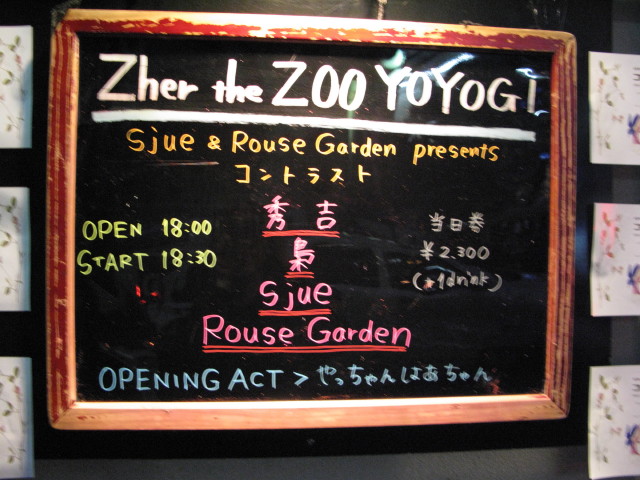 Zher the ZOO YOYOGI
Sjue & Rouse Garden presents
コントラスト
OPEN 18:00
START 18:30
秀吉
梟
Sjue
Rouse Garden
当日券
¥2.300
(*1drink)
OPENING ACT > やっちゃんはあちゃん